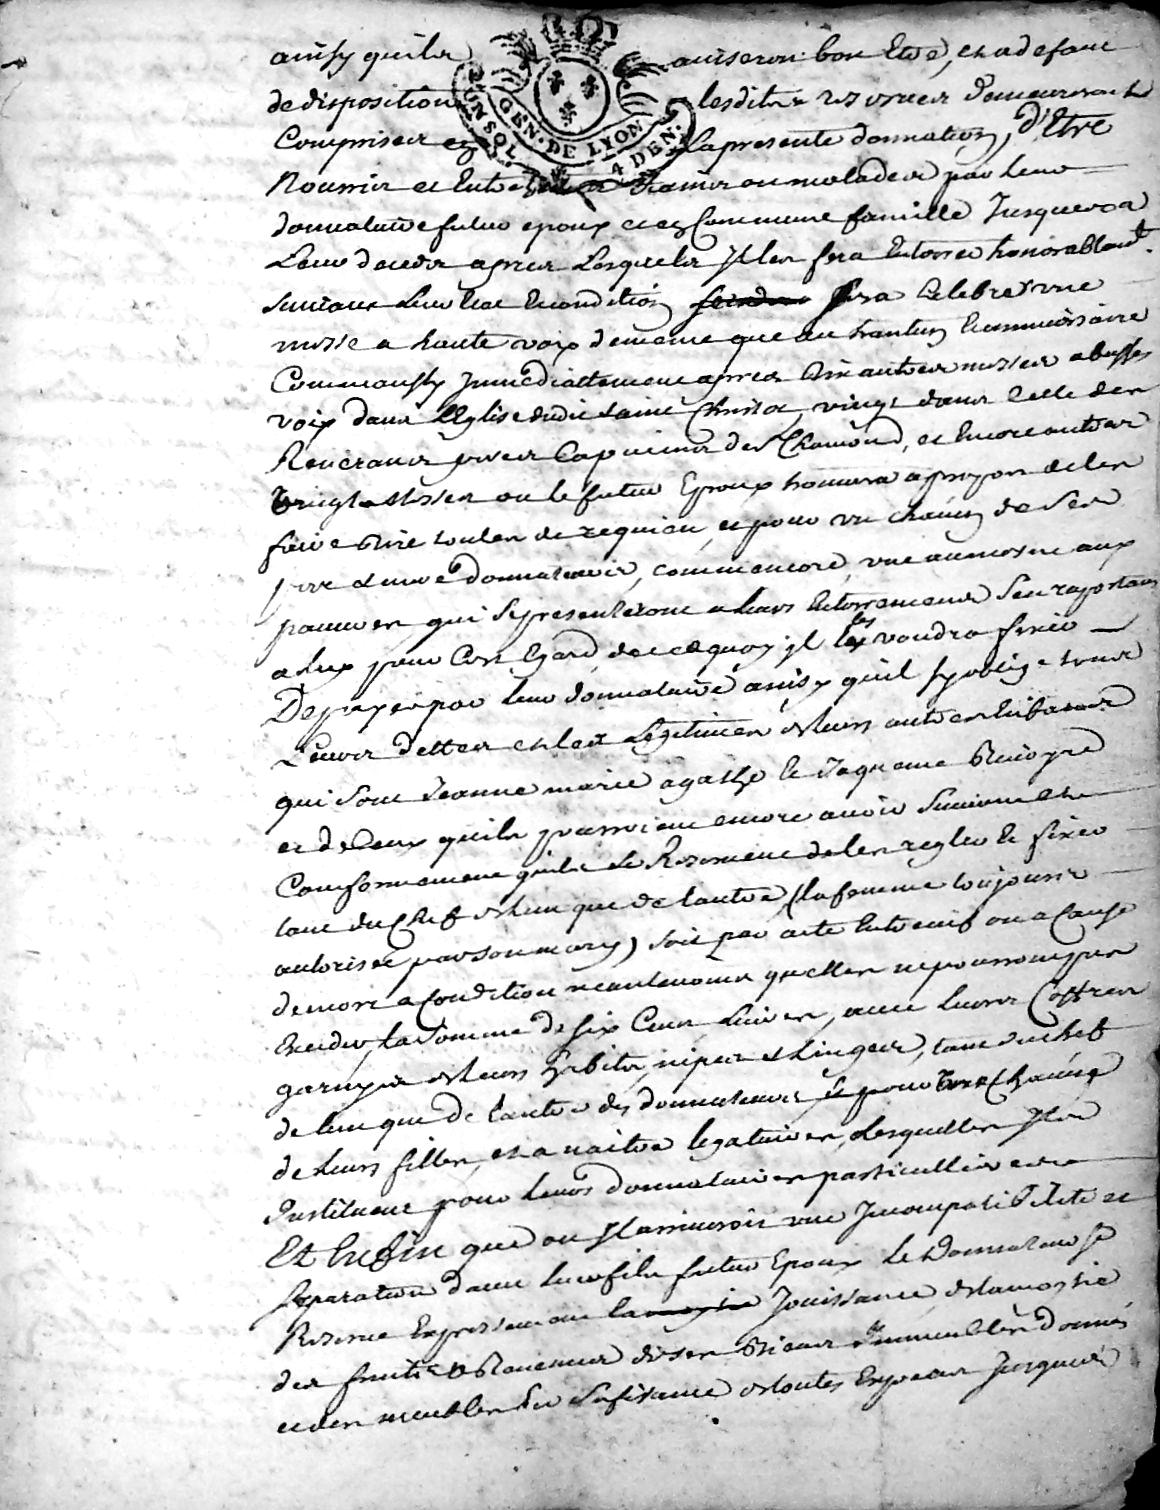 ainsy quils aviseront bon Etre, et a defaut
de disposition lesdites reserves demeureront
Comprises en la presente donnation, d'Etre
Nourris et Entretenus sains ou malades par leur
donnataire futur epoux et en Commune famille Jusques a
Leur deceds apres Lesquels Il les fera Enterrer honorablemt.
suivant Leur Etat Et condition fera Celebrer une
messe a haute voix de meme que au trantin Et anniversaire
Comm'aussy Immediattement apres autres messes a basse
voix dans l'Eglise dudit saint Christot, vingt dans Celle des
Reverands peres Capucins de St Chamond, et Encore autres
vingt Messes ou le futur Epoux trouvera a propos de les
faire dire toutes de requiem, et pour un chacun de ses
pere et mere donnateurs, comme encore, une aumosne aux
pauvres qui se presenteront a leurs Enterrements s'en raportans
a luy pour Cet Egard, de ce a quoy il les voudra fixer
De payer par leur donnataire ainsy quil s'y oblige toutes
Leurs dettes et les Legitimes de leurs autres Enfants
qui sont Jeanne marie agathe Et Jaqueme
et de Ceux quils pourroient encore avoir suivant et
Conformement quils se Reservent de les regler Et fixer
tant du Chef de l'un que de l'autre (la femme toujours
autorisée par son mary) soit par acte Entre vifs ou a Cause
de mort a Condition neantmoins quelles ne pourront pas
Exceder La somme de six Cent Livres, avec Leurs Coffres
garnys de leurs habits, nipes et Linges, tant du chef
de l'un que de l'autre des donnateurs pour Chacune
de Leurs filles, et a naitre legataires, Lesquelles Ils
Instituent pour Leurs donnataires particullieres
Et Enfin que ou Il arriveroit une Incompatibilité et
separation d'avec Leur fils futur Epoux Le Donnateur se
Reserve Expressement la moytié Jouissance de la moytié
des fruits et Revenus de ses Biens Immeubles Donnés
et des meubles En suffisance de toutes Especes Jusques
GEN. DE LYON
UN SOL 4 DEN.